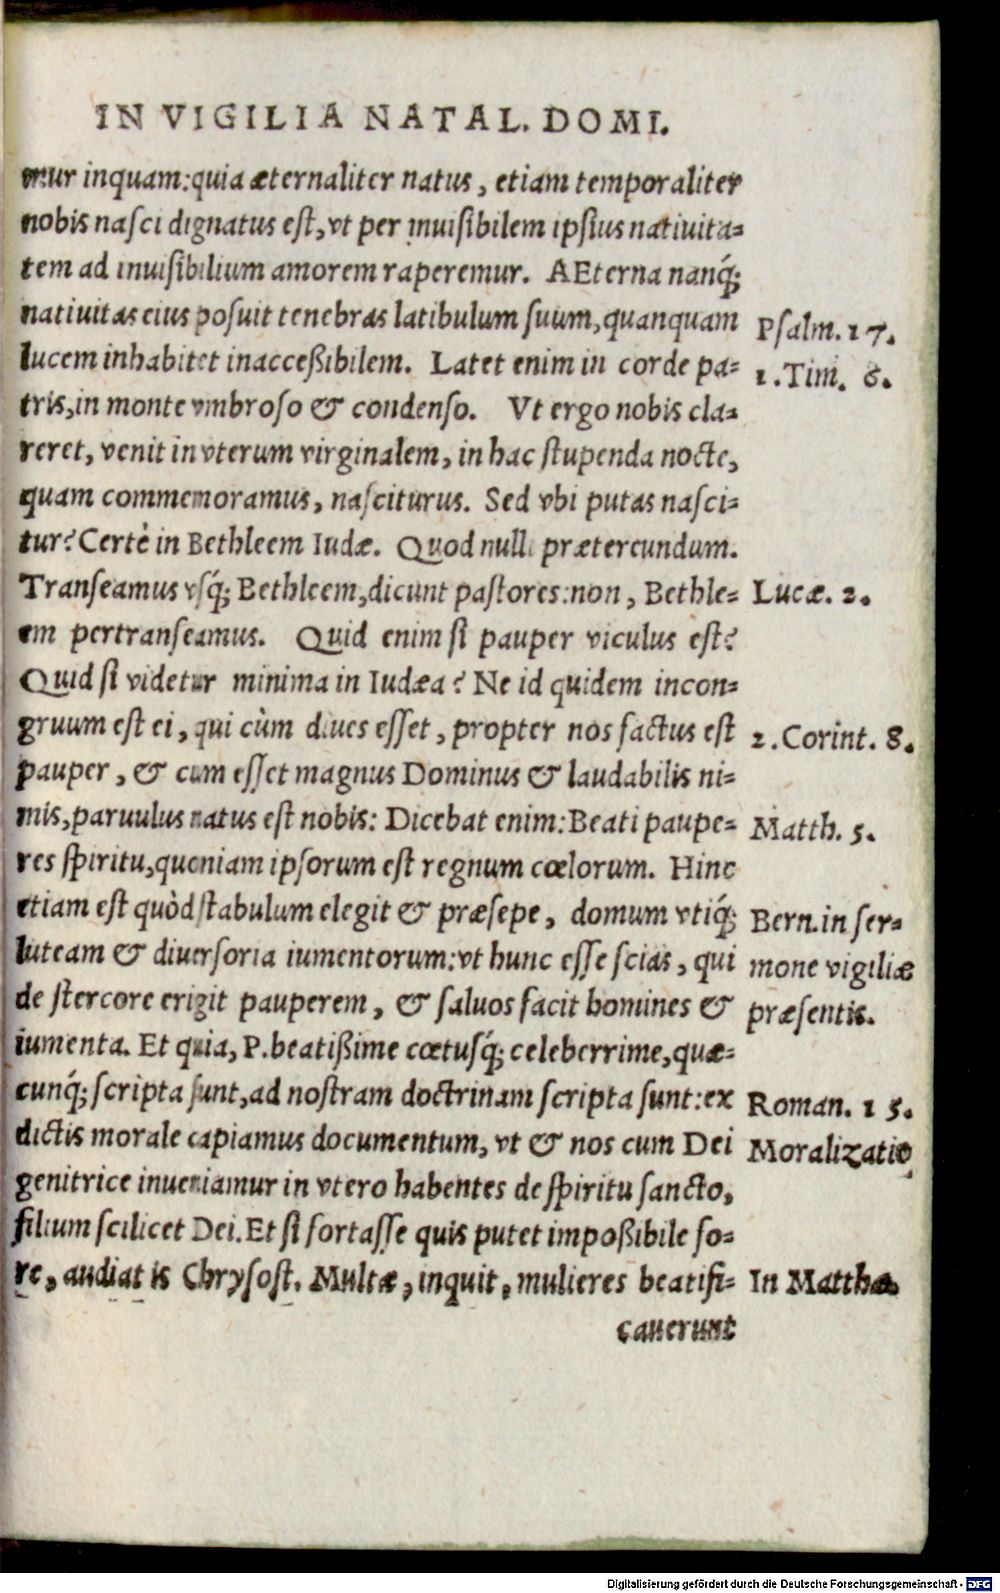 IN VIGILIA NATAL. DOMI.
mur inquam: quia æternaliter natus, etiam temporaliter
nobis nasci dignatus est, vt per inuisibilem ipsius natiuita-
tem ad inuisibilium amorem raperemur. AEterna nanq́;
natiuitas eius posuit tenebras latibulum suum, quanquam
Psalm. 17.
lucem inhabitet inaccessibilem. Latet enim in corde pa-
1. Tim. 6.
tris, in monte vmbroso & condenso. Vt ergo nobis cla-
reret, venit in vterum virginalem, in hac stupenda nocte,
quam commemoramus, nasciturus. Sed vbi putas nasci-
tur? Certè in Bethleem Iudæ. Quod nulli prætereundum.
Transeamus vsq́; Bethleem, dicunt pastores: non, Bethle-
Lucæ. 2.
em pertranseamus. Quid enim si pauper viculus est?
Quid si videtur minima in Iudæa? Ne id quidem incon-
gruum est ei, qui cùm diues esset, propter nos factus est
2. Corint. 8.
pauper, & cum esset magnus Dominus & laudabilis ni-
mis, paruulus natus est nobis: Dicebat enim: Beati paupe-
Matth. 5.
res spiritu, quoniam ipsorum est regnum cœlorum. Hinc
etiam est quòd stabulum elegit & præsepe, domum vtiq́;
Bern. in ser-
luteam & diuersoria iumentorum: vt hunc esse scias, qui
mone vigiliæ
de stercore erigit pauperem, & saluos facit homines &
præsentis.
iumenta. Et quia, P. beatissime cœtusq́; celeberrime, quæ-
cunq́; scripta sunt, ad nostram doctrinam scripta sunt: ex
Roman. 15.
dictis morale capiamus documentum, vt & nos cum Dei
Moralizatio
genitrice inueniamur in vtero habentes de spiritu sancto,
filium scilicet Dei. Et si fortasse quis putet impossibile fo-
re, audiat is Chrysost. Multæ, inquit, mulieres beatifi-
In Matthæ.
cauerunt
Digitalisierung gefördert durch die Deutsche Forschungsgemeinschaft - DFG